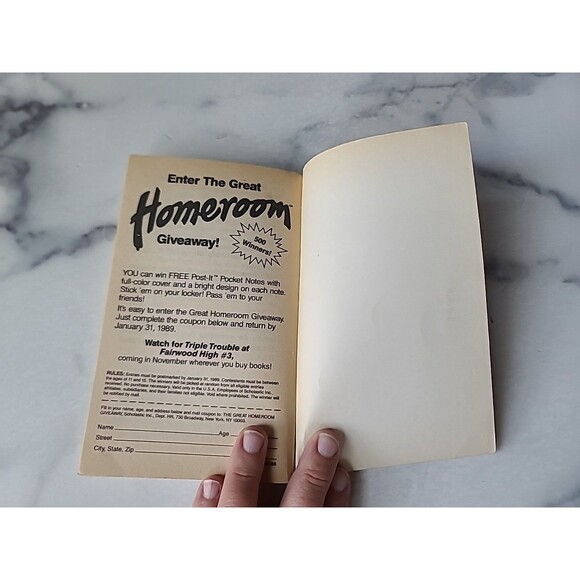 Enter The Great
Homeroom™
Giveaway!
500
Winners!
YOU can win FREE Post-It™ Pocket Notes with
full-color cover and a bright design on each note.
Stick 'em on your locker! Pass 'em to your
friends!
It's easy to enter the Great Homeroom Giveaway.
Just complete the coupon below and return by
January 31, 1989.
Watch for Triple Trouble at
Fairwood High #3,
coming in November wherever you buy books!
RULES: Entries must be postmarked by January 31, 1989. Contestants must be between
the ages of 11 and 15. The winners will be picked at random from all eligible entries
received. No purchase necessary. Valid only in the U.S.A. Employees of Scholastic Inc.,
affiliates, subsidiaries, and their families not eligible. Void where prohibited. The winner will
be notified by mail.
Fill in your name, age, and address below and mail coupon to: THE GREAT HOMEROOM
GIVEAWAY, Scholastic Inc., Dept. HR, 730 Broadway, New York, NY 10003.
Name Age
Street
City, State, Zip